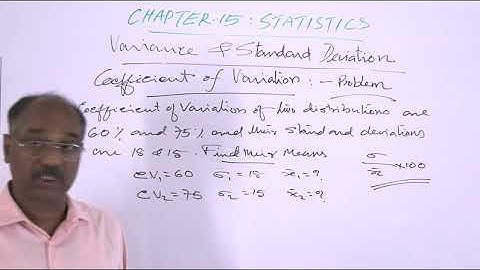 CHAPTER-15: STATISTICS
Variance & Standard Deviation
Coefficient of Variation: - Problem
Coefficient of Variation of two distributions are
60% and 75% and their standard deviations
are 18 & 15. Find their means
σ/x̄ ×100
CV₁=60 σ₁=18 x̄₁=?
CV₂=75 σ₂=15 x̄₂=?